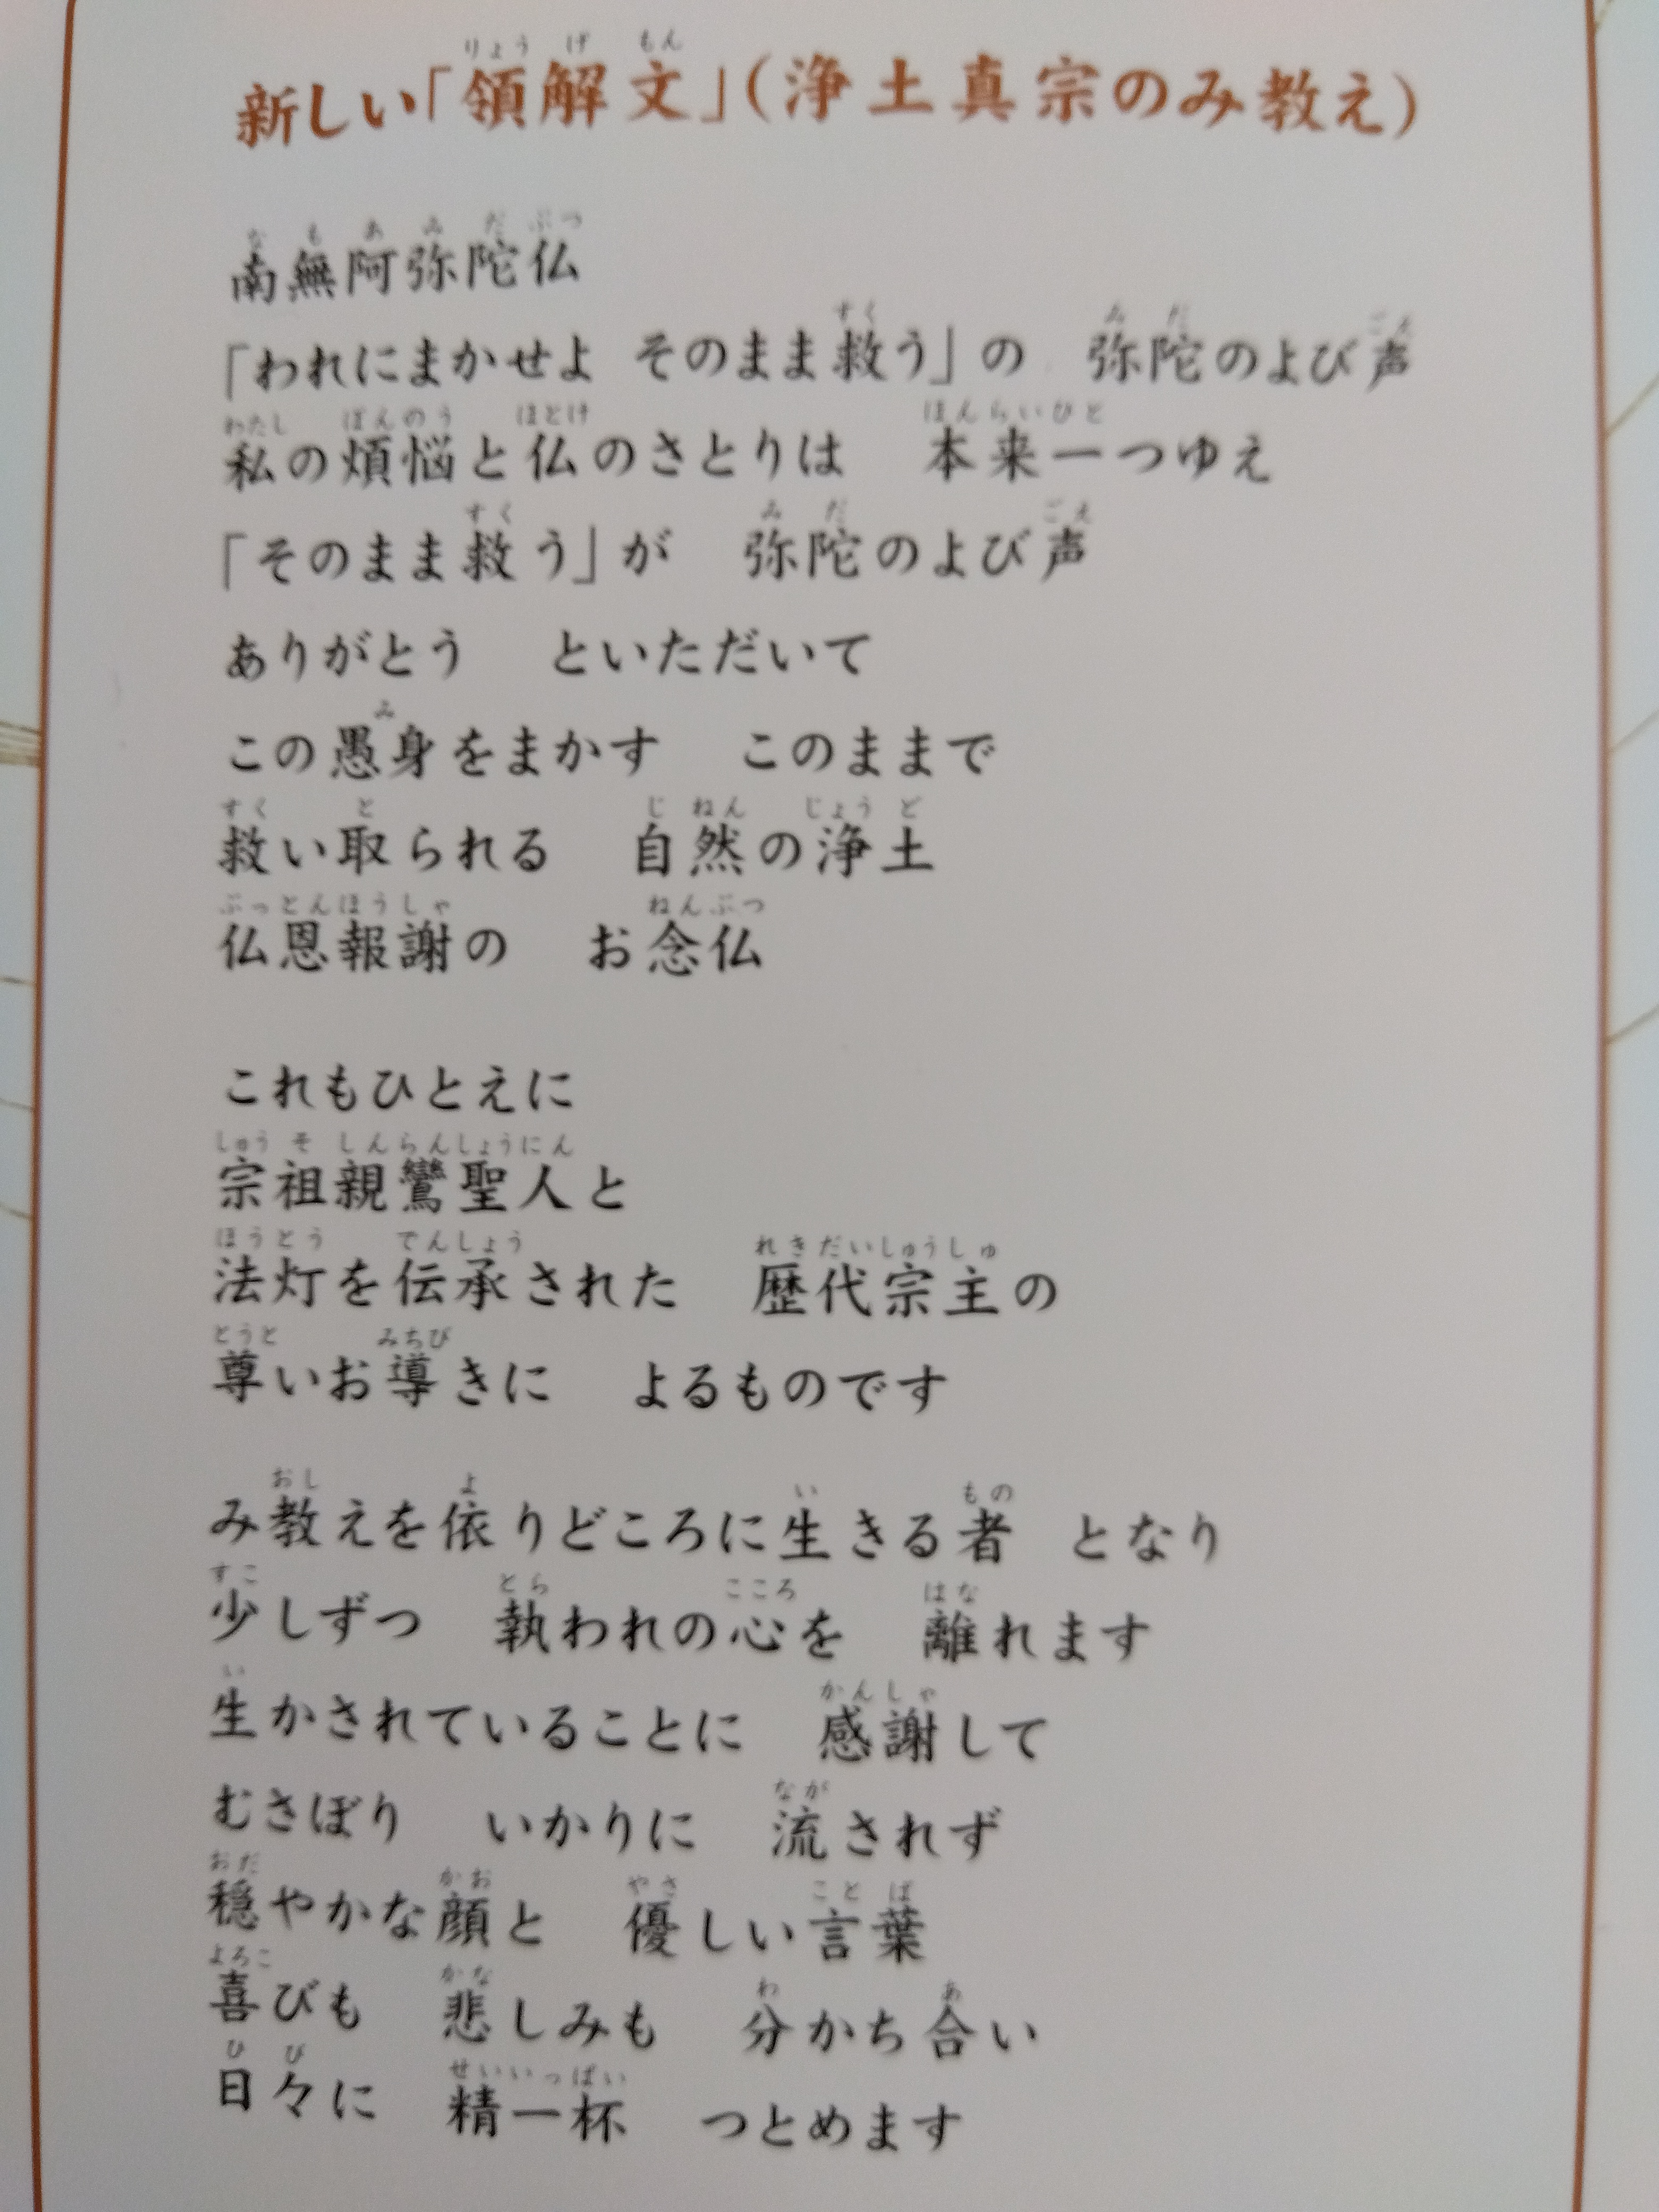 新しい「領解文」(浄土真宗のみ教え)
南無阿弥陀仏
「われにまかせよ そのまま救う」の 弥陀のよび声
私の煩悩と仏のさとりは 本来一つゆえ
「そのまま救う」が 弥陀のよび声
ありがとう といただいて
この愚身をまかす このままで
救い取られる 自然の浄土
仏恩報謝の お念仏
これもひとえに
宗祖親鸞聖人と
法灯を伝承された 歴代宗主の
尊いお導きに よるものです
み教えを依りどころに生きる者 となり
少しずつ 執われの心を 離れます
生かされていることに 感謝して
むさぼり いかりに 流されず
穏やかな顔と 優しい言葉
喜びも 悲しみも 分かち合い
日々に 精一杯 つとめます